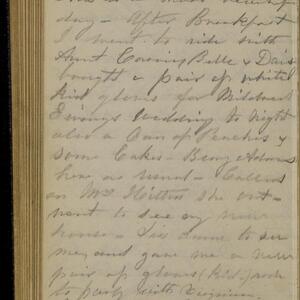 day - After Breakfast
I went to ride with
Aunt Belle & Dais
bought a pair of white
kid gloves for Mildred
Ewings Wedding to night
also a Can of Peaches &
some Cakes -
here as usual - Called
on Mrs she out -
went to see my new
house - Sis came to see
me, and gave me a new
pair of gloves
to party with